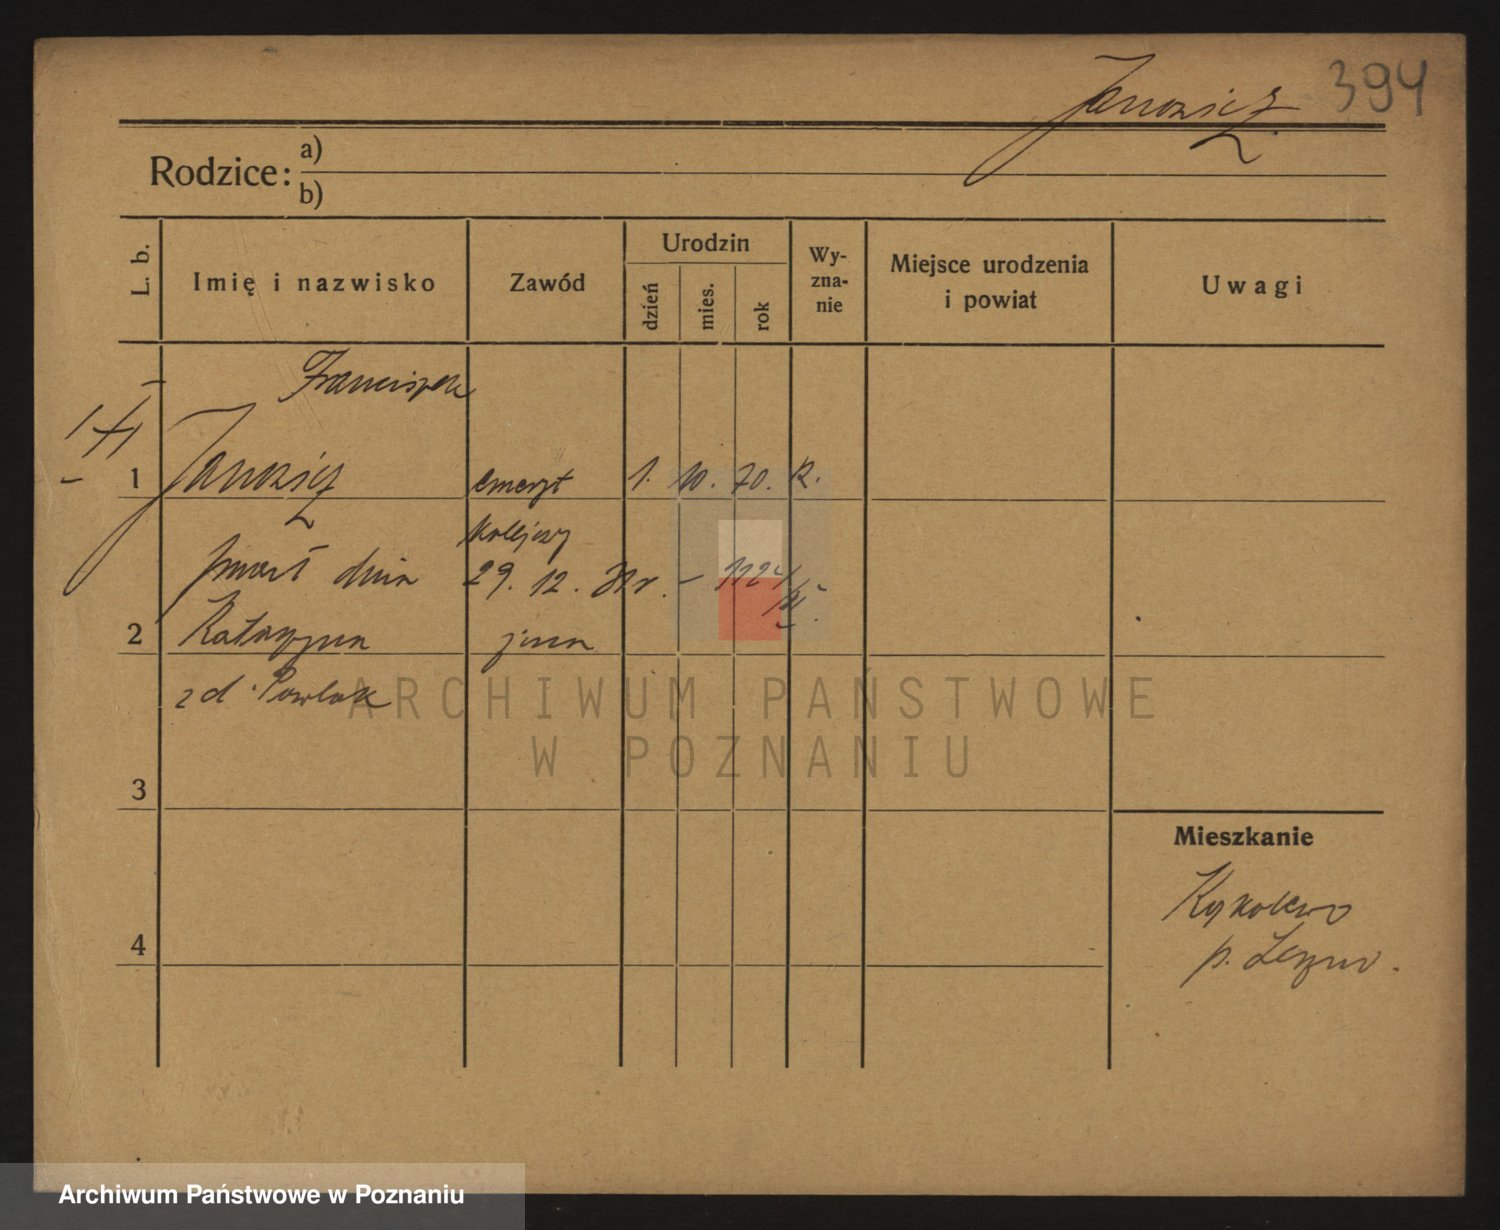 394
Rodzice:
a)
b)
L. b.
Imię i nazwisko
Zawód
Urodzin
dzień
mies.
rok
Wy-
zna-
nie
Miejsce urodzenia
i powiat
Uwagi
Franciszek
1
emeryt 1. 10. 70. R.
kolejowy
zmarł dnia 29. 12. 31 r. –
2
Katarzyna
żona
zd. Pawlak
3
4
Mieszkanie
p. Leszno.
ARCHIWUM PAŃSTWOWE
W POZNANIU
Archiwum Państwowe w Poznaniu